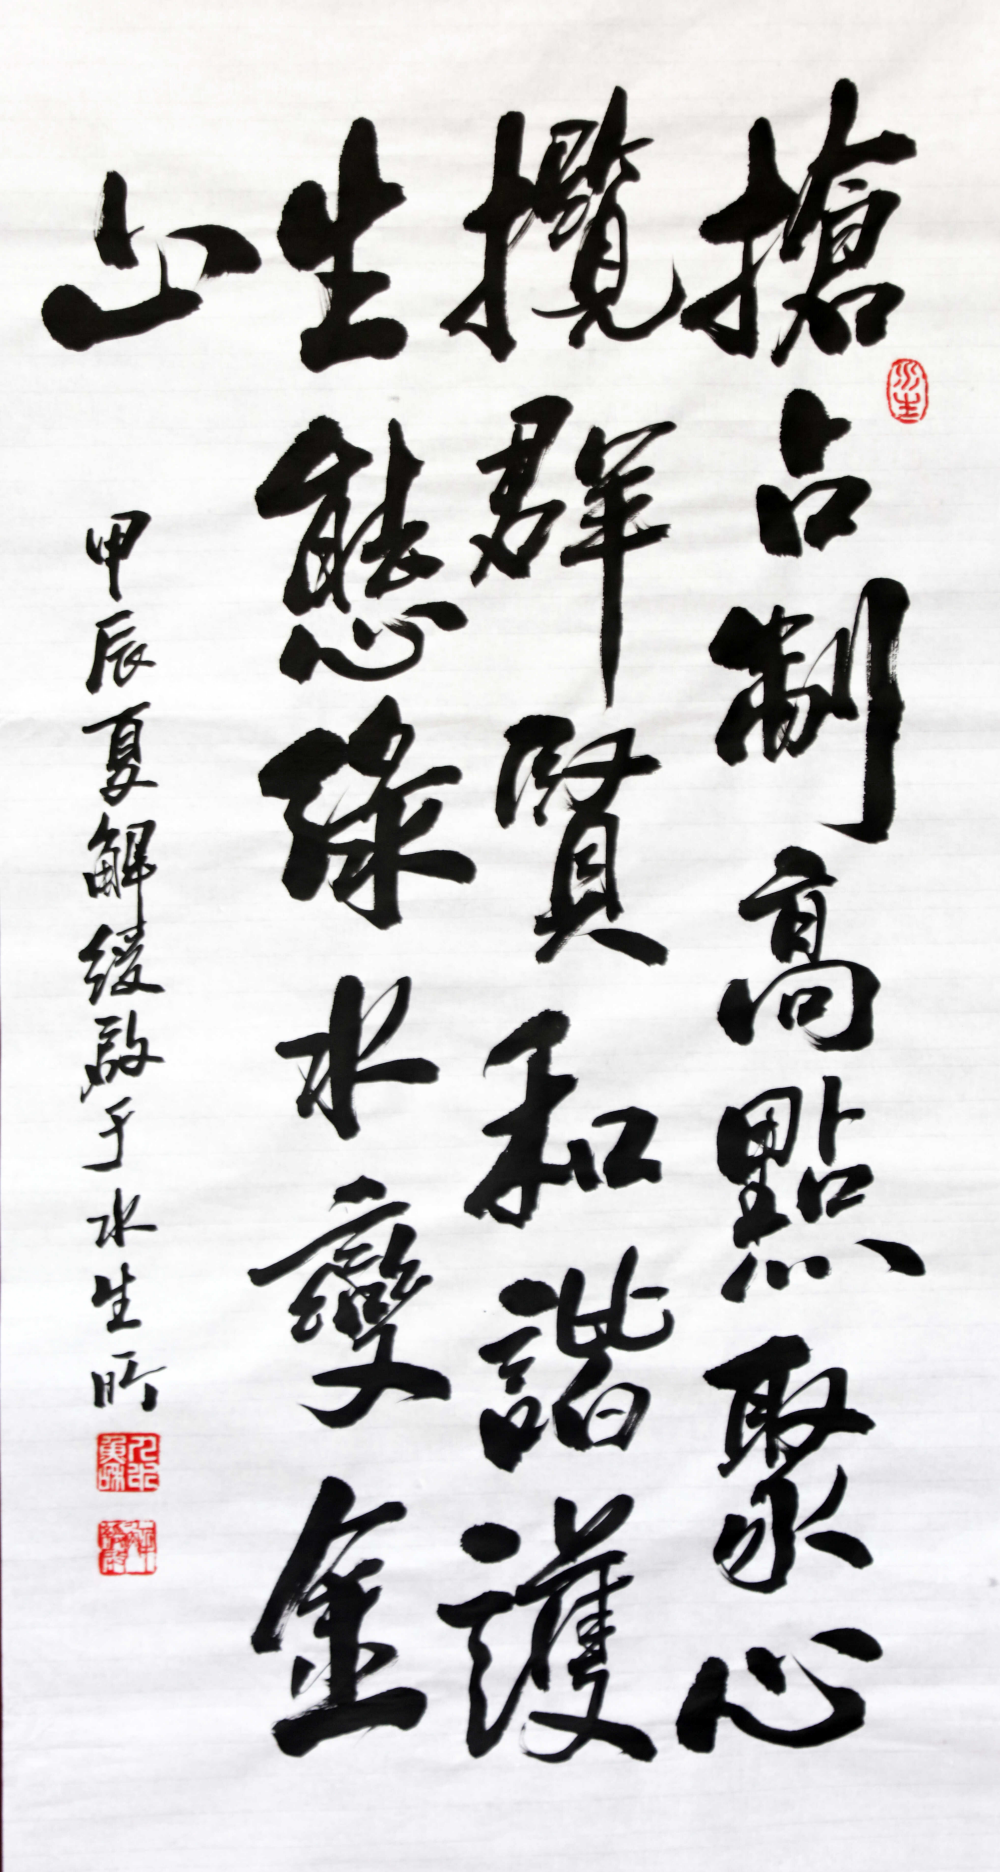 搶占制高點聚心
攬群賢和諧護
生態綠水變金
山
甲辰夏解綬啟于水生所